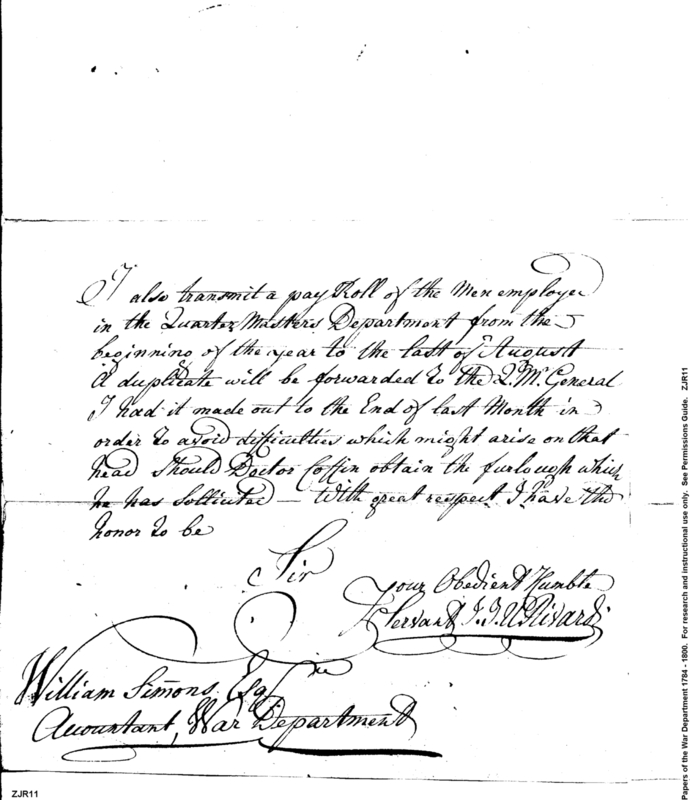 I also transmit a pay Roll of the Men employed
in the Quarter Masters Department from the
beginning of the year to the last of August
A duplicate will be forwarded to the Q. Mr. General
I had it made out to the End of last Month in
order to avoid difficulties which might arise on that
head should Doctor Coffin obtain the furlough which
he has sollicited — With great respect I have the
honor to be
Sir
Your Obedient Humble
Servant J. J. U. Rivardi
William Simmons Esqre
Accountant, War Department
ZJR11
Papers of the War Department 1784 - 1800. For research and instructional use only. See Permissions Guide. ZJR11